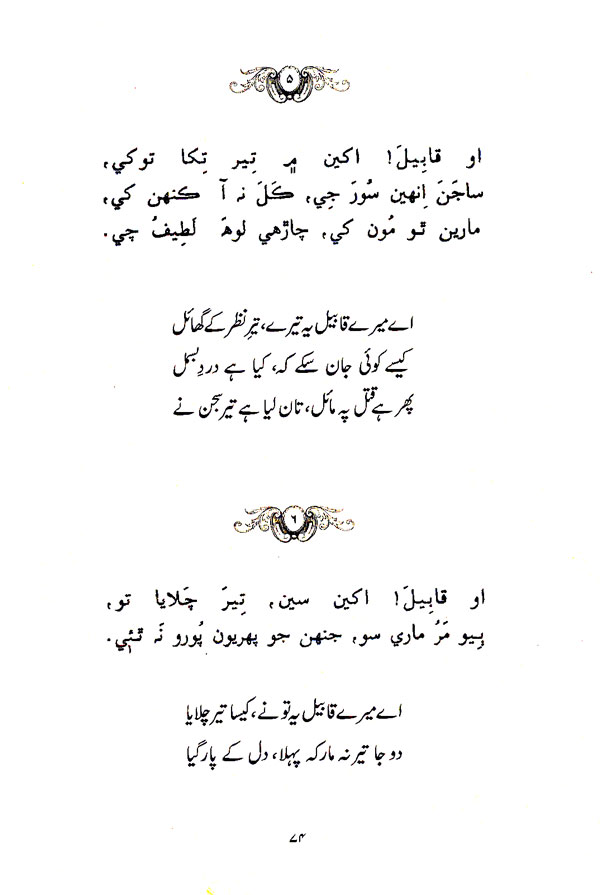 ۵
او قابِيلَ! اکين ۾ تِير تِکا توکي،
ساڄَنَ اِنهين سُورَ جِي، ڪَلَ نہ آ ڪنهن کي،
مارين ٿو مُون کي، چاڙهي لوهَ لَطِيفُ چي.
اے میرے قابیل یہ تیرے، تیرِ نظر کے گھائل
کیسے کوئی جان سکے کہ، کیا ہے دردِ بسمل
پھر ہے قتل پہ مائل، تان لیا ہے تیر سجن نے
۶
او قابِيلَ! اکين سين، تِيرَ چَلايا تو،
ٻِيو مَرُ ماري سو، جنهن جو پهريون پُورو نَہ ٿئي.
اے میرے قابیل یہ تو نے، کیسا تیر چلایا
دوجا تیر نہ مار کہ پہلا، دل کے پار گیا
۷۴